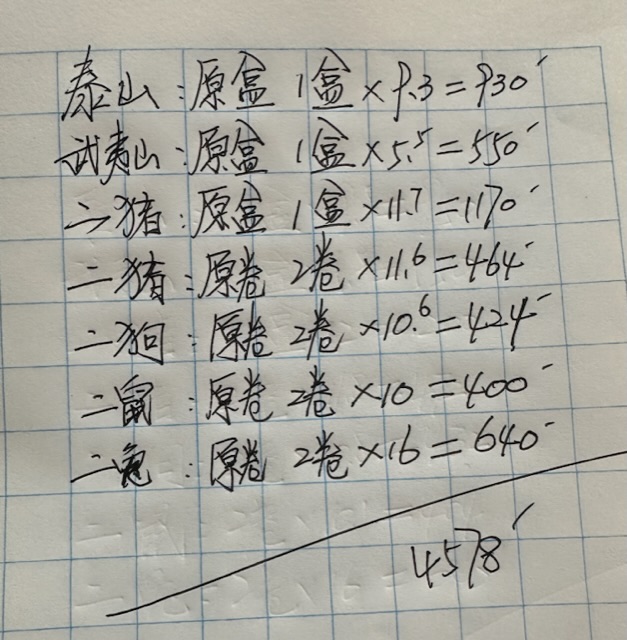 泰山:原盒 1盒×9.3=930
武夷山:原盒 1盒×5.5=550
二猪:原盒 1盒×11.7=1170
二猪:原卷 2卷×11.6=464
二狗:原卷 2卷×10.6=424
二鼠:原卷 2卷×10=400
二兔:原卷 2卷×16=640
4578